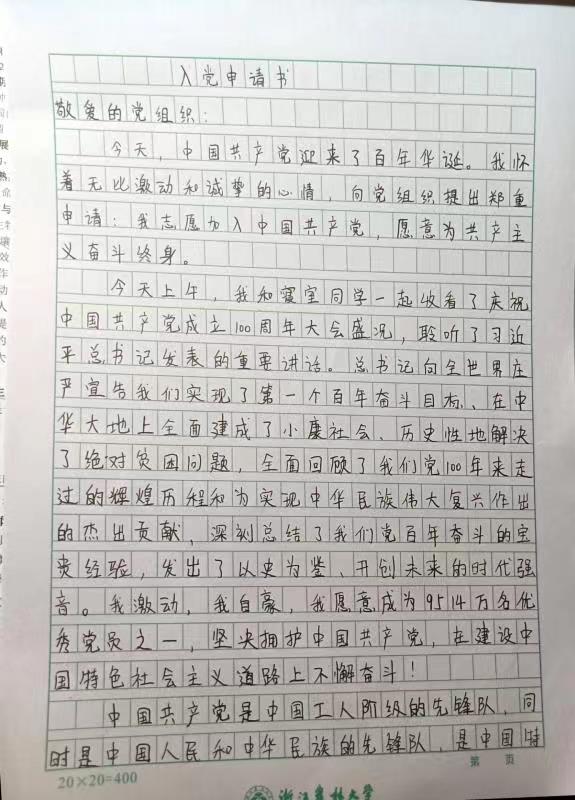 入党申请书
敬爱的党组织：
今天，中国共产党迎来了百年华诞。我怀
着无比激动和诚挚的心情，向党组织提出郑重
申请：我志愿加入中国共产党，愿意为共产主
义奋斗终身。
今天上午，我和寝室同学一起收看了庆祝
中国共产党成立100周年大会盛况，聆听了习近
平总书记发表的重要讲话。总书记向全世界庄
严宣告我们实现了第一个百年奋斗目标、在中
华大地上全面建成了小康社会、历史性地解决
了绝对贫困问题，全面回顾了我们党100年来走
过的辉煌历程和为实现中华民族伟大复兴作出
的杰出贡献，深刻总结了我们党百年奋斗的宝
贵经验，发出了以史为鉴、开创未来的时代强
音。我激动，我自豪，我愿意成为9514万名优
秀党员之一，坚决拥护中国共产党，在建设中
国特色社会主义道路上不懈奋斗！
中国共产党是中国工人阶级的先锋队，同
时是中国人民和中华民族的先锋队，是中国特
20×20=400
第 页
浙江农林大学